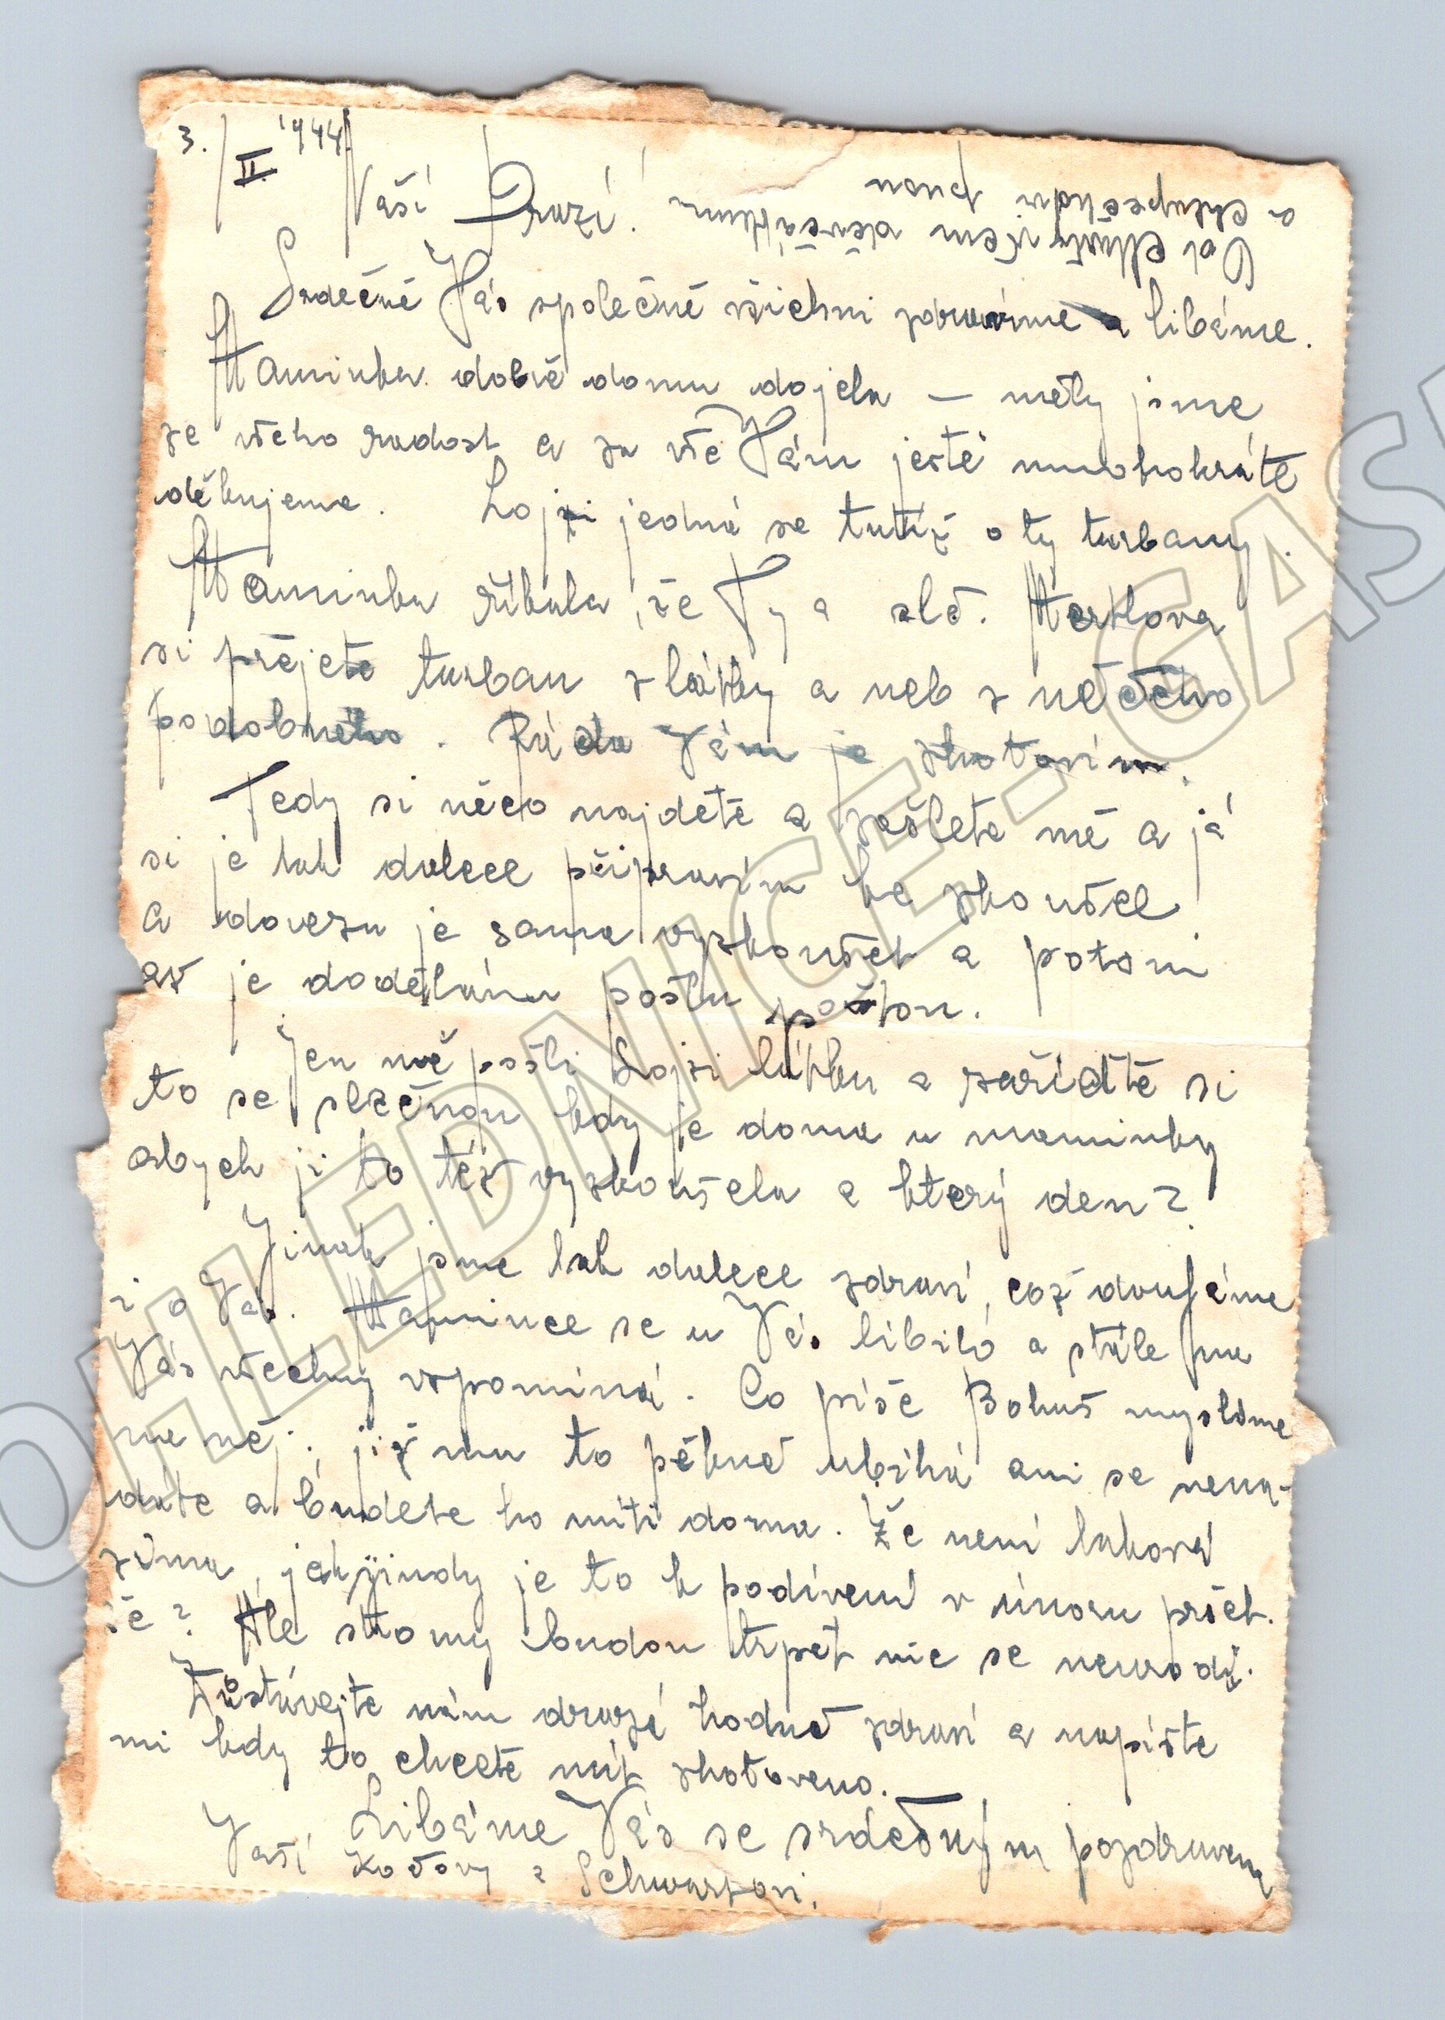 3./II. 1944.
Naši Drazí!
Srdečně Vás společně všichni zdravíme a líbáme.
Maminka dobře domu dojela – měly jsme
ze všeho radost a za vše Vám ještě mnohokráte
děkujeme. Lojzi jedná se tutíž o ty turbany.
Maminka říkala, že Ty a slč. Merklova
si přejete turban z látky a neb z něčeho
podobného. Ráda Vám je zhotovím.
Tedy si něco najdětě a pošlete mě a já
si je tak dalece připravím ke zkoušce
a dovezu je sama vyzkoušet a potom
až je dodělám pošlu poštou.
Jen mě pošli Lojzi látku a zařiďtě si
to se slečnou kdy je doma u maminky
abych ji to též vyzkoušela a který den?
Jinak jsme tak dalece zdraví, což doufáme
i o Vás. Mamince se u Vás líbilo a stále na
Vás všechny vzpomíná. Co píše Bohuš myslíme
na něj, již mu to pěkně ubíhá ani se nena-
dáte a budete ho míti doma. Že není taková
zima, jak jindy je to k podívení v únoru pršet.
že? Ale stromy budou trpět nic se neurodí.
Zůstávejte nám drazí hodně zdraví a napište
mi kdy to chcete mít zhotoveno.
Líbáme Vás se srdečným pozdravem
Vaši a Schwarzovi.
POHLEDNICE-GAS